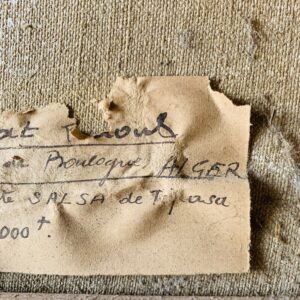 Raoul
Boulogne, ALGER
te SALSA de Tipasa
000 +.